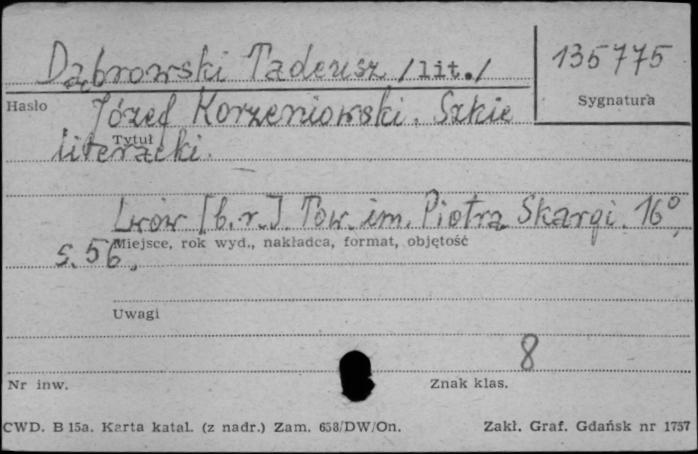 Dąbrowski Tadeusz /lit./
135775
Hasło
Sygnatura
Józef Korzeniowski. Szkic
Tytuł
literacki.
Lwów [b.r.]. Tow. im. Piotra Skargi. 16°,
Miejsce, rok wyd., nakładca, format, objętość
s. 56.
Uwagi
8
Nr inw.
Znak klas.
CWD. B 15a. Karta katal. (z nadr.) Zam. 658/DW/On.
Zakł. Graf. Gdańsk nr 1757